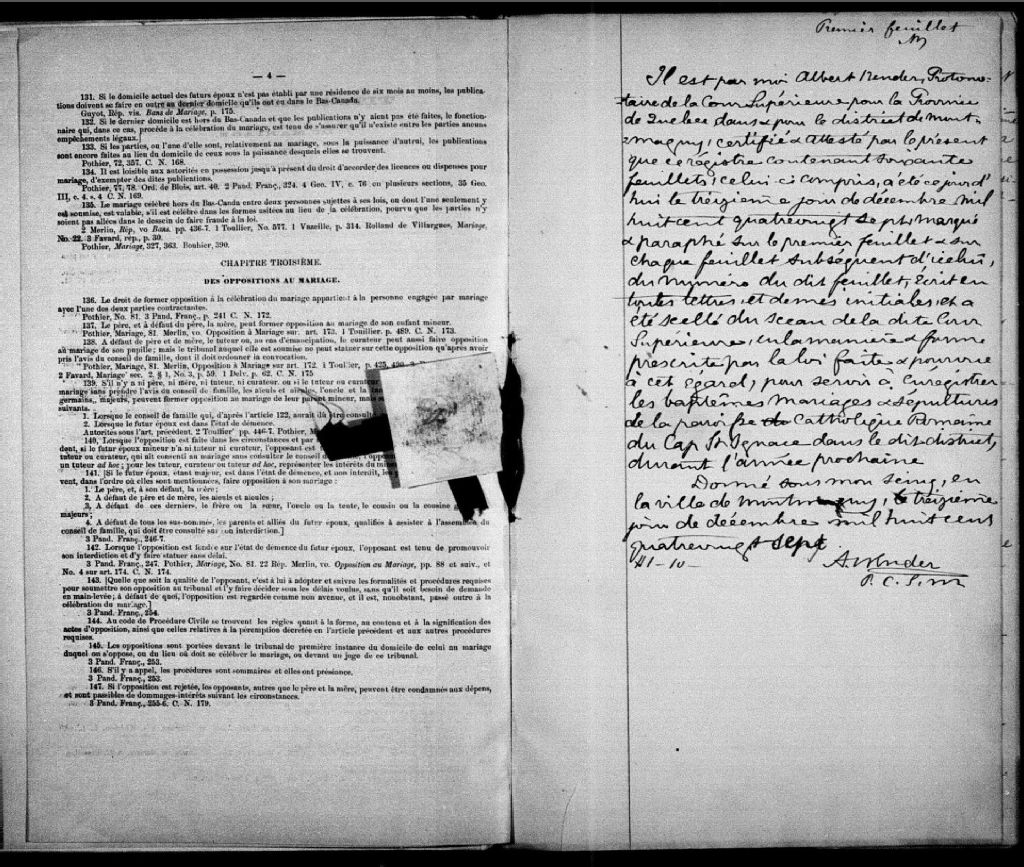 — 4 —
131. Si le domicile actuel des futurs époux n'est pas établi par une résidence de six mois au moins, les publica-
tions doivent se faire en outre au dernier domicile qu'ils ont eu dans le Bas-Canada.
Guyot, Rép. vis. Bans de Mariage, p. 175.
132. Si le dernier domicile est hors du Bas-Canada et que les publications n'y aient pas été faites, le fonction-
naire qui, dans ce cas, procède à la célébration du mariage, est tenu de s'assurer qu'il n'existe entre les parties aucuns
empêchements légaux.]
133. Si les parties, ou l'une d'elle sont, relativement au mariage, sous la puissance d'autrui, les publications
sont encore faites au lieu du domicile de ceux sous la puissance desquels elles se trouvent.
Pothier, 72, 357. C. N. 168.
134. Il est loisible aux autorités en possession jusqu'à présent du droit d'accorder des licences ou dispenses pour
mariage, d'exempter des dites publications.
Pothier, 77, 78. Ord. de Blois, art. 40. 2 Pand. Franç., 324. 4 Geo. IV, c. 76 en plusieurs sections, 35 Geo.
III, c. 4. s. 4 C. N. 169.
135. Le mariage célébré hors du Bas-Canda entre deux personnes sujettes à ses lois, ou dont l'une seulement y
est soumise, est valable, s'il est célébré dans les formes usitées au lieu de la célébration, pourvu que les parties n'y
soient pas allées dans le dessein de faire fraude à la loi.
2 Merlin, Rép. vo Bans. pp. 436-7. 1 Toullier, No. 577. 1 Vazeille, p. 314. Rolland de Villargues, Mariage,
No. 22. 3 Favard, rép., p. 30.
Pothier, Mariage, 327, 363. Bouhier, 390.
CHAPITRE TROISIÈME.
DES OPPOSITIONS AU MARIAGE.
136. Le droit de former opposition à la célébration du mariage appartient à la personne engagée par mariage
avec l'une des deux parties contractantes.
Pothier, No. 81. 3 Pand. Franç., p. 241 C. N. 172.
137. Le père, et à défaut du père, la mère, peut former opposition au mariage de son enfant mineur.
Pothier, Mariage, 81. Merlin, vo. Opposition à Mariage sur. art. 173. 1 Touillier. p. 489. C. N. 173.
138. A défaut de père et de mère, le tuteur ou, au cas d'émancipation, le curateur peut aussi faire opposition
au mariage de son pupille; mais le tribunal auquel elle est soumise ne peut statuer sur cette opposition qu'après avoir
pris l'avis du conseil de famille, dont il doit ordonner la convocation.
Pothier, Mariage, 81. Merlin, Opposition à Mariage sur art. 172. 1 Toullier, p. 425, 490.
2 Favard, Mariage sec. 2. § 1, No. 3, p. 59. 1 Delv. p. 62, C. N. 175
139. S'il n'y a ni père, ni mère, ni tuteur, ni curateur, ou si le tuteur ou curateur
mariage sans prendre l'avis du conseil de famille, les aïeuls et aïeules, l'oncle et la
germains, majeurs, peuvent former opposition au mariage de leur parent mineur, mais
suivants.
1. Lorsque le conseil de famille qui, d'après l'article 122, aurait dû être consulté
2. Lorsque le futur époux est dans l'état de démence.
Autorités sous l'art. précédent. 2 Toullier pp. 446-7. Pothier,
140. Lorsque l'opposition est faite dans les circonstances et par
dent, si le futur époux mineur n'a ni tuteur ni curateur, l'opposant est
tuteur ou curateur, qui ait consenti au mariage sans consulter le conseil
un tuteur ad hoc; pour les tuteur, curateur ou tuteur ad hoc, représenter les intérêts du mineur
141. [Si le futur époux, étant majeur, est dans l'état de démence, et non interdit,
vent, dans l'ordre où elles sont mentionnées, faire opposition à son mariage:
1. Le père, et, à son défaut, la mère;
2. A défaut de père et de mère, les aïeuls et aïeules;
3, A défaut de ces derniers, le frère ou la sœur, l'oncle ou la tante, le cousin ou la cousine
majeurs;
4. A défaut de tous les sus-nommés, les parents et alliés du futur époux, qualifiés à assister à l'assemblée du
conseil de famille, qui doit être consulté sur son interdiction.]
3 Pand. Franç., 246-7.
142. Lorsque l'opposition est fondée sur l'état de démence du futur époux, l'opposant est tenu de promouvoir
son interdiction et d'y faire statuer sans délai.
3 Pand. Franç. 247. Pothier, Mariage, No. 81. 22 Rép. Merlin, vo. Opposition au Mariage, pp. 88 et suiv., et
No. 4 sur art. 174. C. N. 174.
143. [Quelle que soit la qualité de l'opposant, c'est à lui à adopter et suivre les formalités et procédures requises
pour soumettre son opposition au tribunal et l'y faire décider sous les délais voulus, sans qu'il soit besoin de demande
en main-levée; à défaut de quoi, l'opposition est regardée comme non avenue, et il est, nonobstant, passé outre à la
célébration du mariage.]
3 Pand. Franç., 254.
144. Au code de Procédure Civile se trouvent les règles quant à la forme, au contenu et à la signification des
actes d'opposition, ainsi que celles relatives à la péremption décrétée en l'article précédent et aux autres procédures
requises.
145. Les oppositions sont portées devant le tribunal de première instance du domicile de celui au mariage
duquel on s'oppose, ou du lieu où doit se célébrer le mariage, ou devant un juge de ce tribunal.
3 Pand. Franç., 253.
146. S'il y a appel, les procédures sont sommaires et elles ont préséance.
3 Pand. Franç., 253.
147. Si l'opposition est rejetée, les opposants, autres que le père et la mère, peuvent être condamnés aux dépens,
et sont passibles de dommages-intérêts suivant les circonstances.
3 Pand. Franç., 255-6. C. N. 179.
Premier feuillet
Il est par moi Albert Bender, Protono-
taire de la Cour Supérieure pour la Province
de Quebec dans & pour le district de Mont-
magny, certifié & attesté par le présent
que ce régistre contenant soixante
feuillets, celui ci compris, a été ce jourd'
hui le treizieme jour de décembre mil
huit cent quatrevingt sept, marqué
& paraphé sur le premier feuillet & sur
chaque feuillet subséquent d'icelui,
du numéro du dit feuillet, écrit en
toutes lettres, et de mes initiales, et a
été scellé du sceau de la dite Cour
Supérieure, en la manière & forme
prescrite par la loi faite & pourvue
à cet égard, pour servir à enrégistrer
les baptêmes mariages & sépultures
de la paroisse Catholique Romaine
du Cap St Ignace dans le dit district,
durant l'année prochaine
Donné sous mon seing, en
la ville de Montmagny, le treizieme
jour de décembre mil huit cent
quatrevingt sept
A. Bender
P. C. S. M